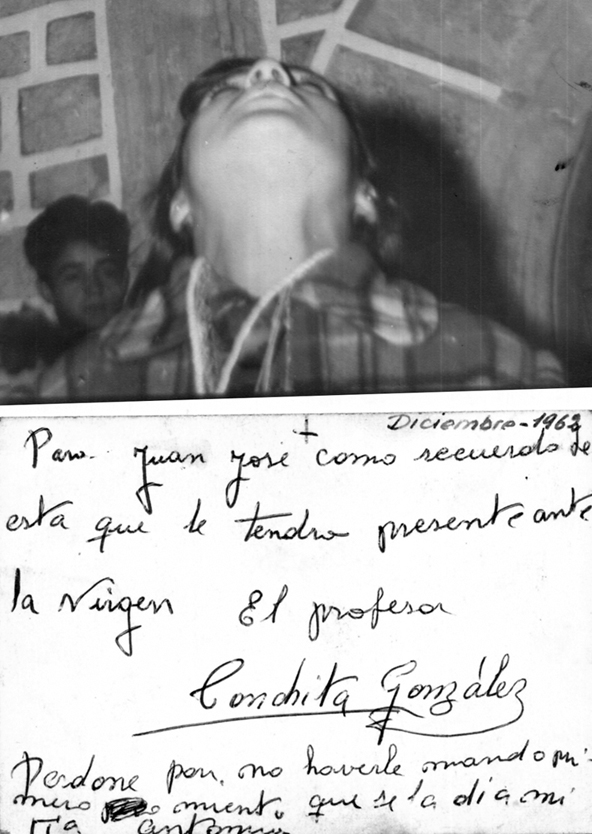 Diciembre-1962
+
Para Juan José como recuerdo de
esta que le tendra presente ante
la Virgen El profesor
Conchita González
Perdone por no haverle mandado pri-
mero que se la dia mi
Tia